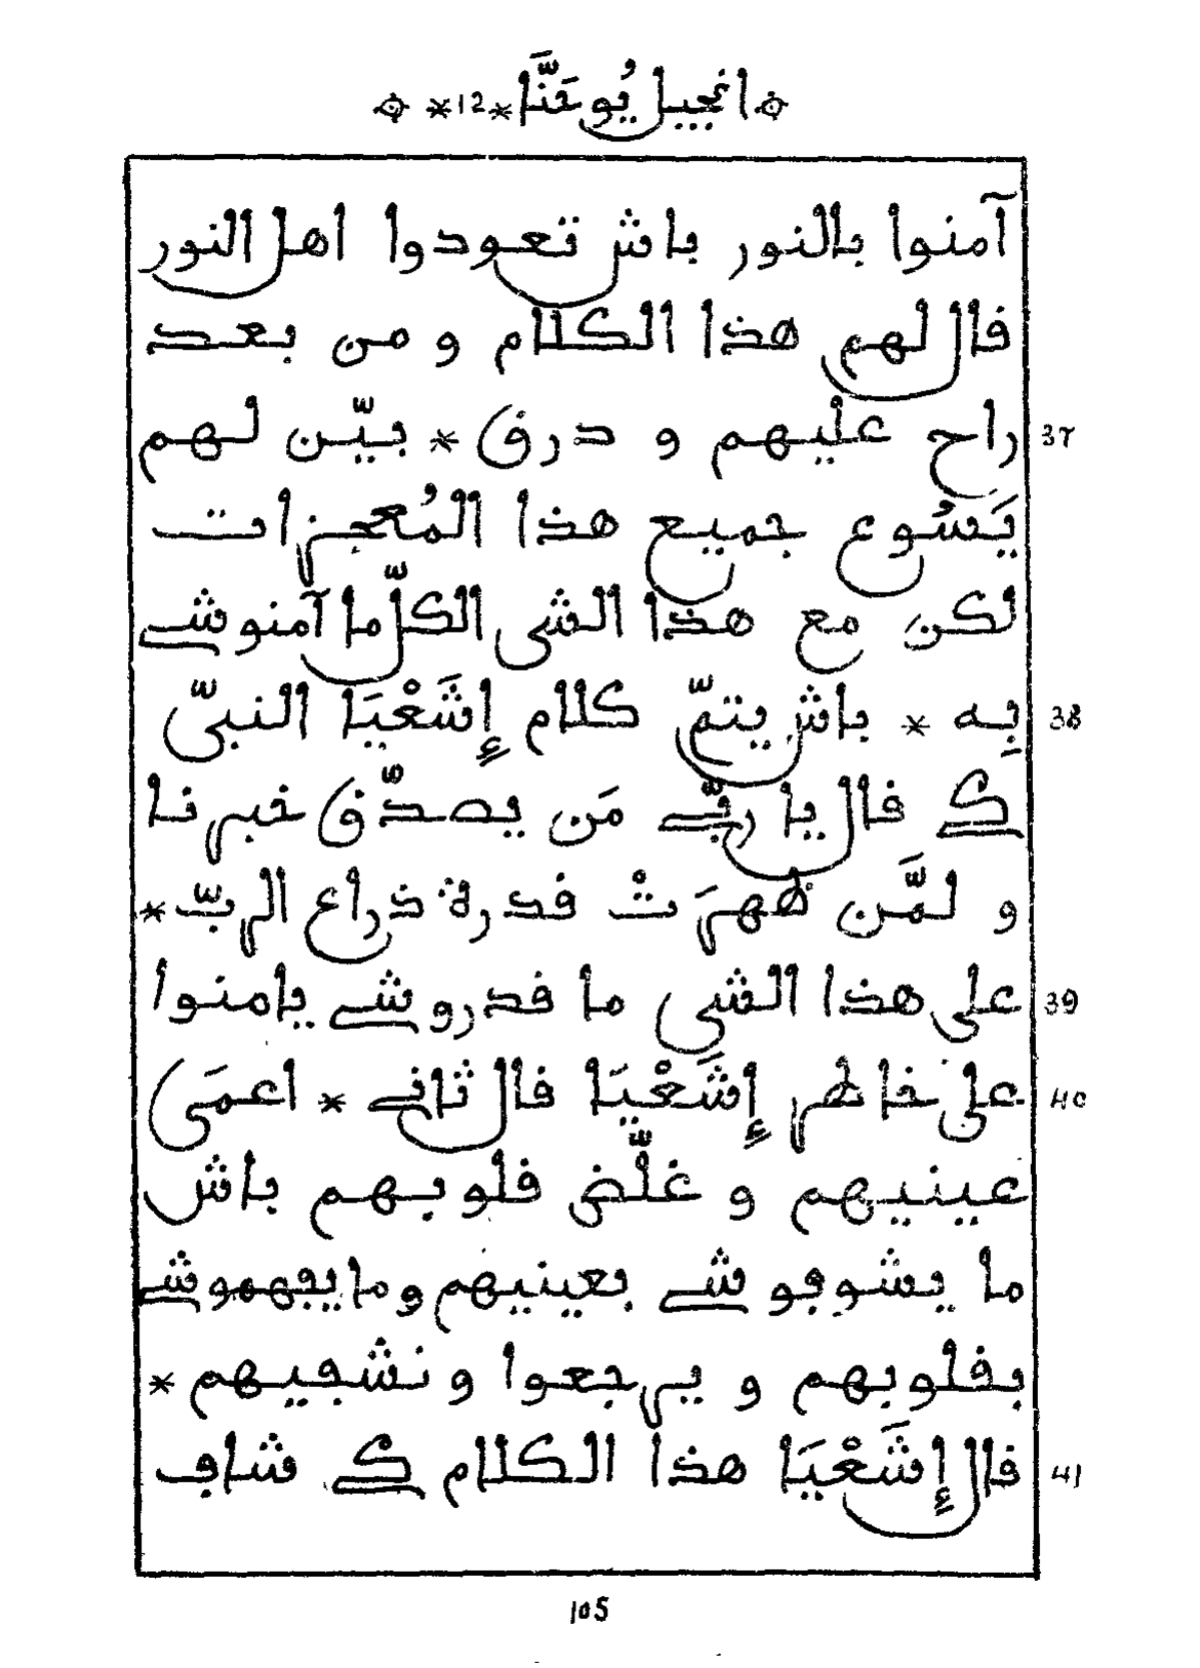 انجيل يُوحَنَّا * 12 *
آمنوا بالنور باش تعودوا اهل النور
قال لهم هذا الكلام و من بعد
37 راح عليهم و درق * بيّن لهم
يَسُوع جميع هذا المُعجزات
لكن مع هذا الشي الكلّ ما آمنوشي
38 بِه * باش يتمّ كلام إِشَعْيَا النبيّ
كي قال يا ربّي مَن يصدّق خبرنا
و لمَّن ظهرَتْ قدرة ذراع الربّ *
39 على هذا الشي ما قدروشي يامنوا
40 على خاطر إِشَعْيَا قال ثاني * اعمَى
عينيهم و غلّض قلوبهم باش
ما يشوفوشي بعينيهم و ما يفهموشي
بقلوبهم و يرجعوا و نشفيهم *
41 قال إِشَعْيَا هذا الكلام كي شاف
105